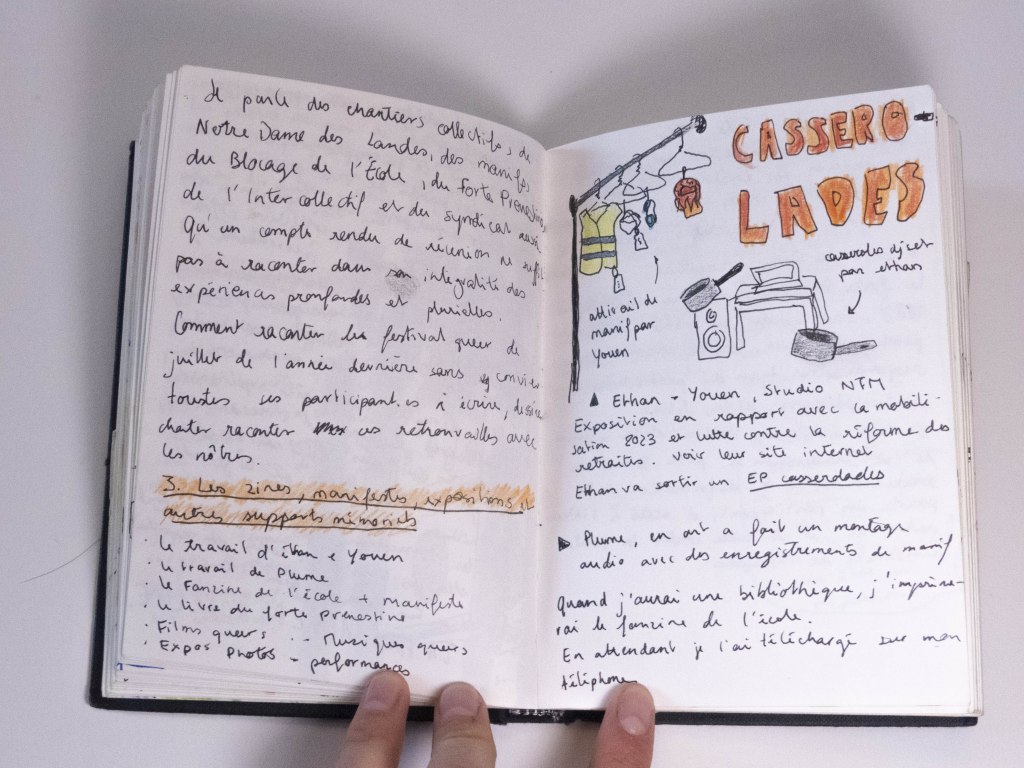 Je parle des chantiers collectifs, de
Notre Dame des Landes, des manifs
du Blocage de l'École, du Forte Prenestino,
de l'Intercollectif et du syndicat aussi
Qu'un compte rendu de réunion ne suffit
pas à raconter dans son intégralité des
expériences profondes et plurielles.
Comment raconter les festival queer de
juillet de l'année dernière sans convier
toustes ces participant.es à écrire,
chanter raconter ces retrouvailles avec
les nôtres.
3. Les zines, manifestes, expositions et
autres supports mémoriels
· Le travail d'Ethan e Youen
· Le travail de Plume
· Le Fanzine de l'École + Manifeste
· Le livre du forte prenestino
· Films queers · - Musiques queers
· Expos Photos - performances
CASSERO-
LADES
casseroles dj set
par ethan
attirail de
manif par
Youen
▲ Ethan - Youen, Studio NTM
Exposition en rapport avec la mobili-
sation 2023 et lutte contre la réforme des
retraites. voir leur site internet
Ethan va sortir un EP casserolades
▶ Plume, en art a fait un montage
audio avec des enregistrements de manif
Quand j'aurai une bibliothèque, j'imprime-
rai le fanzine de l'école.
En attendant je l'ai téléchargé sur mon
téléphone